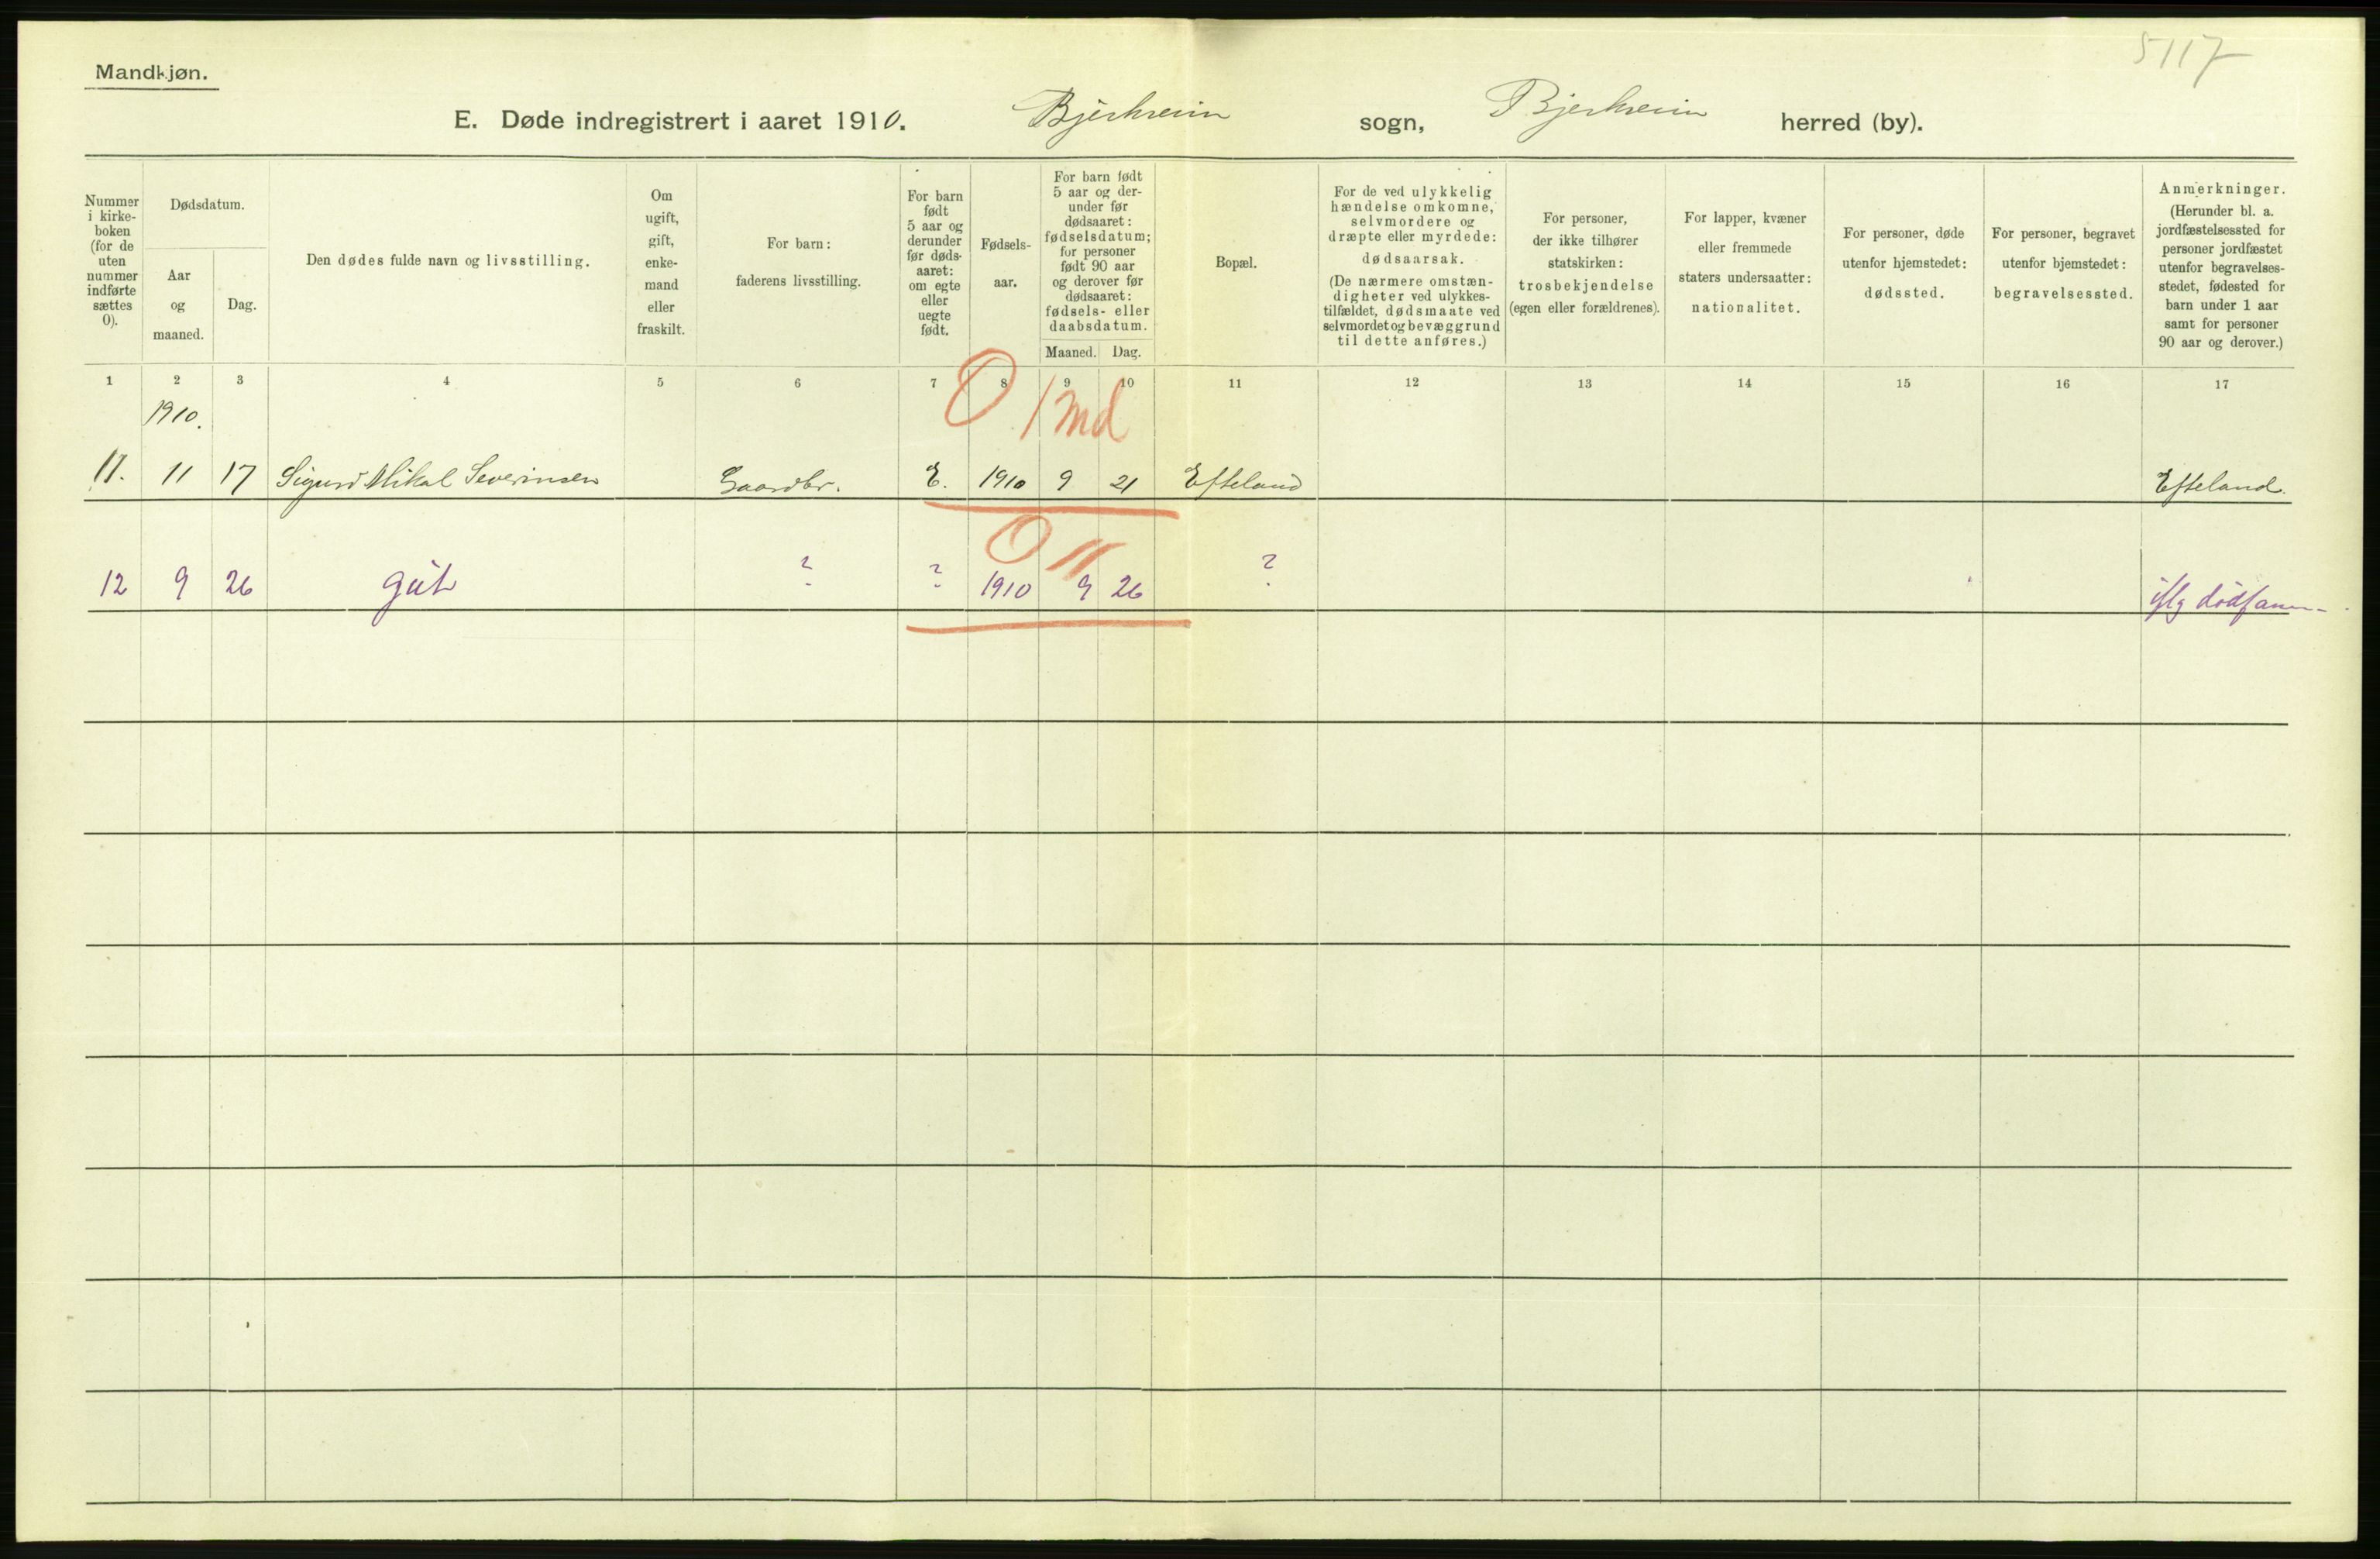 5117
Mandkjøn.
E. Døde indregistrert i aaret 1910. Bjerkreim sogn, Bjerkreim herred (by).
Nummer
i kirke-
boken
(for de
uten
nummer
indførte
sættes
0).
Dødsdatum.
Aar
og
maaned.
Dag.
Den dødes fulde navn og livsstilling.
Om
ugift,
gift,
enke-
mand
eller
fraskilt.
For barn:
faderens livsstilling.
For barn
født
5 aar og
derunder
før døds-
aaret:
om egte
eller
uegte
født.
Fødsels-
aar.
For barn født
5 aar og der-
under før
dødsaaret:
fødselsdatum;
for personer
født 90 aar
og derover før
dødsaaret:
fødsels- eller
daabsdatum.
Maaned. Dag.
Bopæl.
For de ved ulykkelig
hændelse omkomne,
selvmordere og
dræpte eller myrdede:
dødsaarsak.
(De nærmere omstæn-
digheter ved ulykkes-
tilfældet, dødsmaate ved
selvmordet og bevæggrund
til dette anføres.)
For personer,
der ikke tilhører
statskirken:
trosbekjendelse
(egen eller forældrenes).
For lapper, kvæner
eller fremmede
staters undersaatter:
nationalitet.
For personer, døde
utenfor hjemstedet:
dødssted.
For personer, begravet
utenfor hjemstedet:
begravelsessted.
Anmerkninger.
(Herunder bl. a.
jordfæstelsessted for
personer jordfæstet
utenfor begravelses-
stedet, fødested for
barn under 1 aar
samt for personer
90 aar og derover.)
1 2 3 4 5 6 7 8 9 10 11 12 13 14 15 16 17
1910.
0 1 md
11. 11 17 Sigurd Mikal Severinsen Gaardbr. E. 1910 9 21 Efteland Efteland.
0 11
12 9 26 gut ? ? 1910 9 26 ? iflg